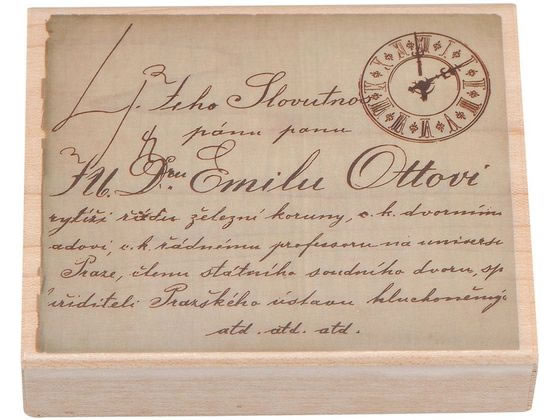 Jeho Slovutnos
pánu panu
JU. Dru. Emilu Ottovi
rytíři řádu železní koruny, c. k. dvorním
adovi, c. k. řádnému professoru na universe
Praze, členu státního soudního dvoru, sp
řiditeli Pražského ústavu hluchoněmý
atd. atd. atd.